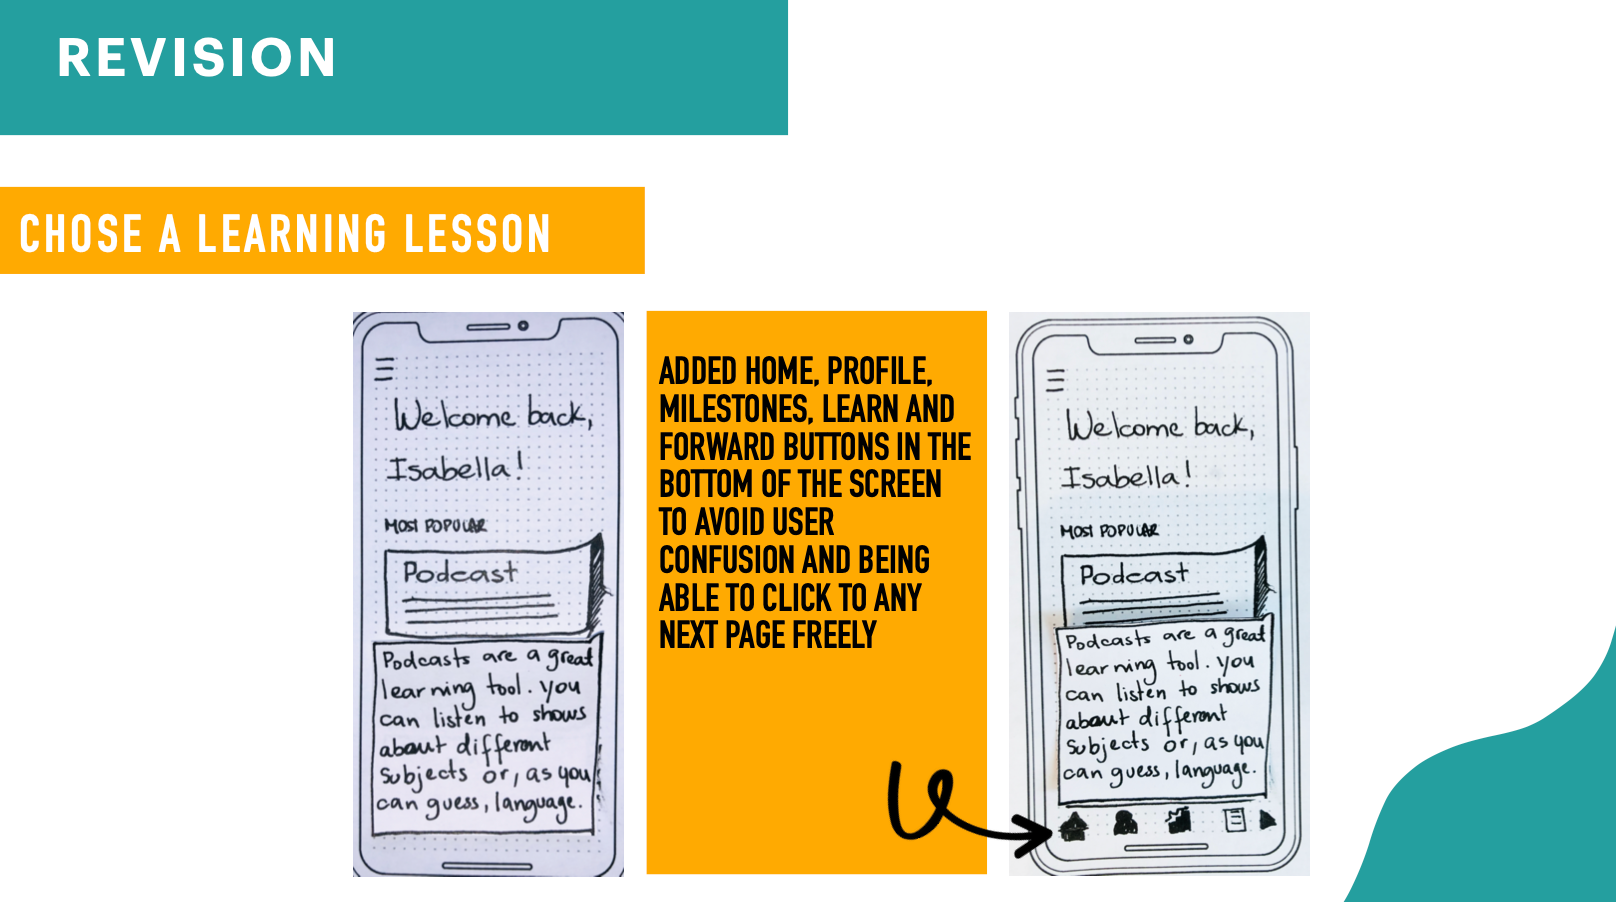 REVISION
CHOSE A LEARNING LESSON
Welcome back,
Isabella!
MOST POPULAR
Podcast
Podcasts are a great
learning tool. you
can listen to shows
about different
subjects or, as you
can guess, language.
ADDED HOME, PROFILE,
MILESTONES, LEARN AND
FORWARD BUTTONS IN THE
BOTTOM OF THE SCREEN
TO AVOID USER
CONFUSION AND BEING
ABLE TO CLICK TO ANY
NEXT PAGE FREELY
Welcome back,
Isabella!
MOST POPULAR
Podcast
Podcasts are a great
learning tool. you
can listen to shows
about different
subjects or, as you
can guess, language.